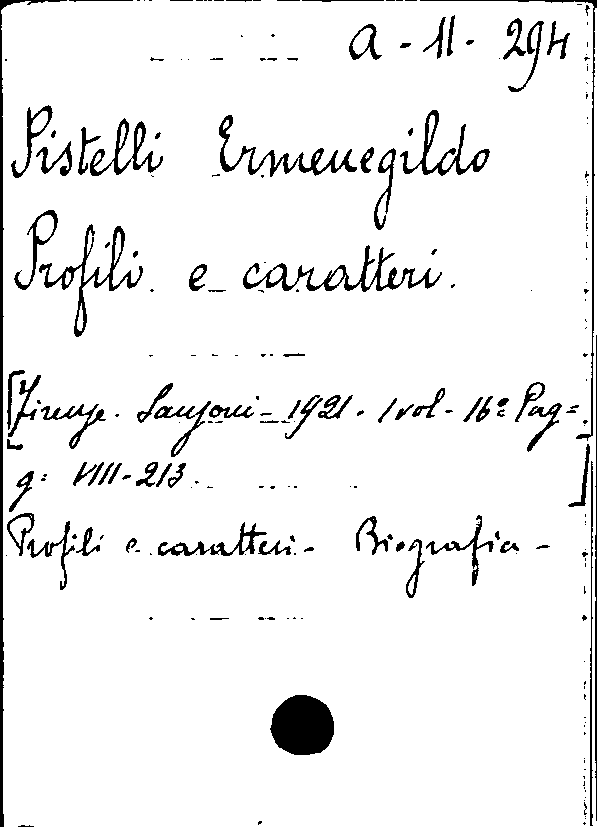 a - 11 - 294
Pistelli Ermenegildo
Profili e caratteri.
[Firenze. Sansoni - 1921. 1 vol - 16º Pag=
g: VIII-213.]
Profili e caratteri - Biografia -